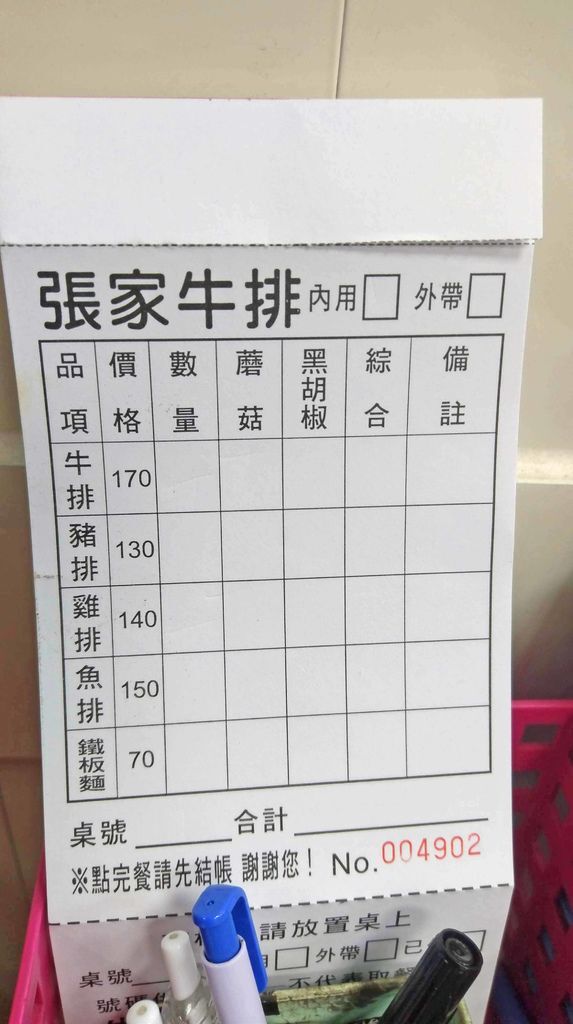 張家牛排 內用□ 外帶□
品項 價格 數量 蘑菇 黑胡椒 綜合 備註
牛排 170
豬排 130
雞排 140
魚排 150
鐵板麵 70
桌號 合計
※點完餐請先結帳 謝謝您！ No.004902
請放置桌上
□ 外帶□ 已
桌號 不代表取
號碼